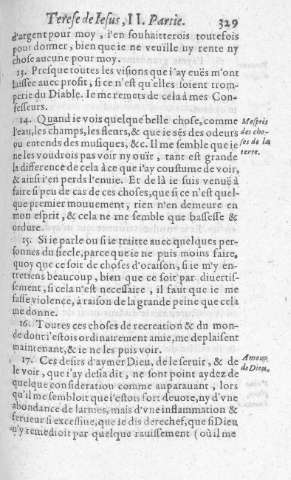 Terese de Iesus, II. Partie. 329
d'argent pour moy, i'en souhaitterois toutesfois
pour donner, bien que ie ne veuille ny rente ny
chose aucune pour moy.
13. Presque toutes les visions que i'ay euës m'ont
laissée auec profit, si ce n'est qu'elles soient trom-
perie du Diable. Ie me remets de cela à mes Con-
fesseurs.
14. Quand ie vois quelque belle chose, comme
l'eau, les champs, les fleurs, & que ie sés des odeurs
ou entends des musiques, &c. Il me semble que ie
ne les voudrois pas voir ny ouïr, tant est grande
la difference de cela à ce que i'ay coustume de voir,
& ainsi i'en perds l'enuie. Et de là ie suis venuë à
faire si peu de cas de ces choses, que si ce n'est quel-
que premier mouuement, rien n'en demeure en
mon esprit, & cela ne me semble que bassesse &
ordure.
Mespris
des cho-
ses de la
terre.
15. Si ie parle ou si ie traitte auec quelques per-
sonnes du siecle, parce que ie ne puis moins faire,
quoy que ce soit de choses d'oraison, si ie m'y en-
tretiens beaucoup, bien que ce soit par diuertis-
sement, si cela n'est necessaire, il faut que ie me
fasse violence, à raison de la grande peine que cela
me donne.
16. Toutes ces choses de recreation & du mon-
de dont i'estois ordinairement amie, me déplaisent
maintenant, & ie ne les puis voir.
17. Ces desirs d'aymer Dieu, de le seruir, & de
le voir, que i'ay desia dit, ne sont point aydez de
quelque consideration comme auparauant, lors
qu'il me sembloit que i'estois fort deuote, ny d'vne
abondance de larmes, mais d'vne inflammation &
ferueur si excessiue, que ie dis derechef, que si Dieu
n'y remedioit par quelque rauissement (où il me
Amour
de Dieu.